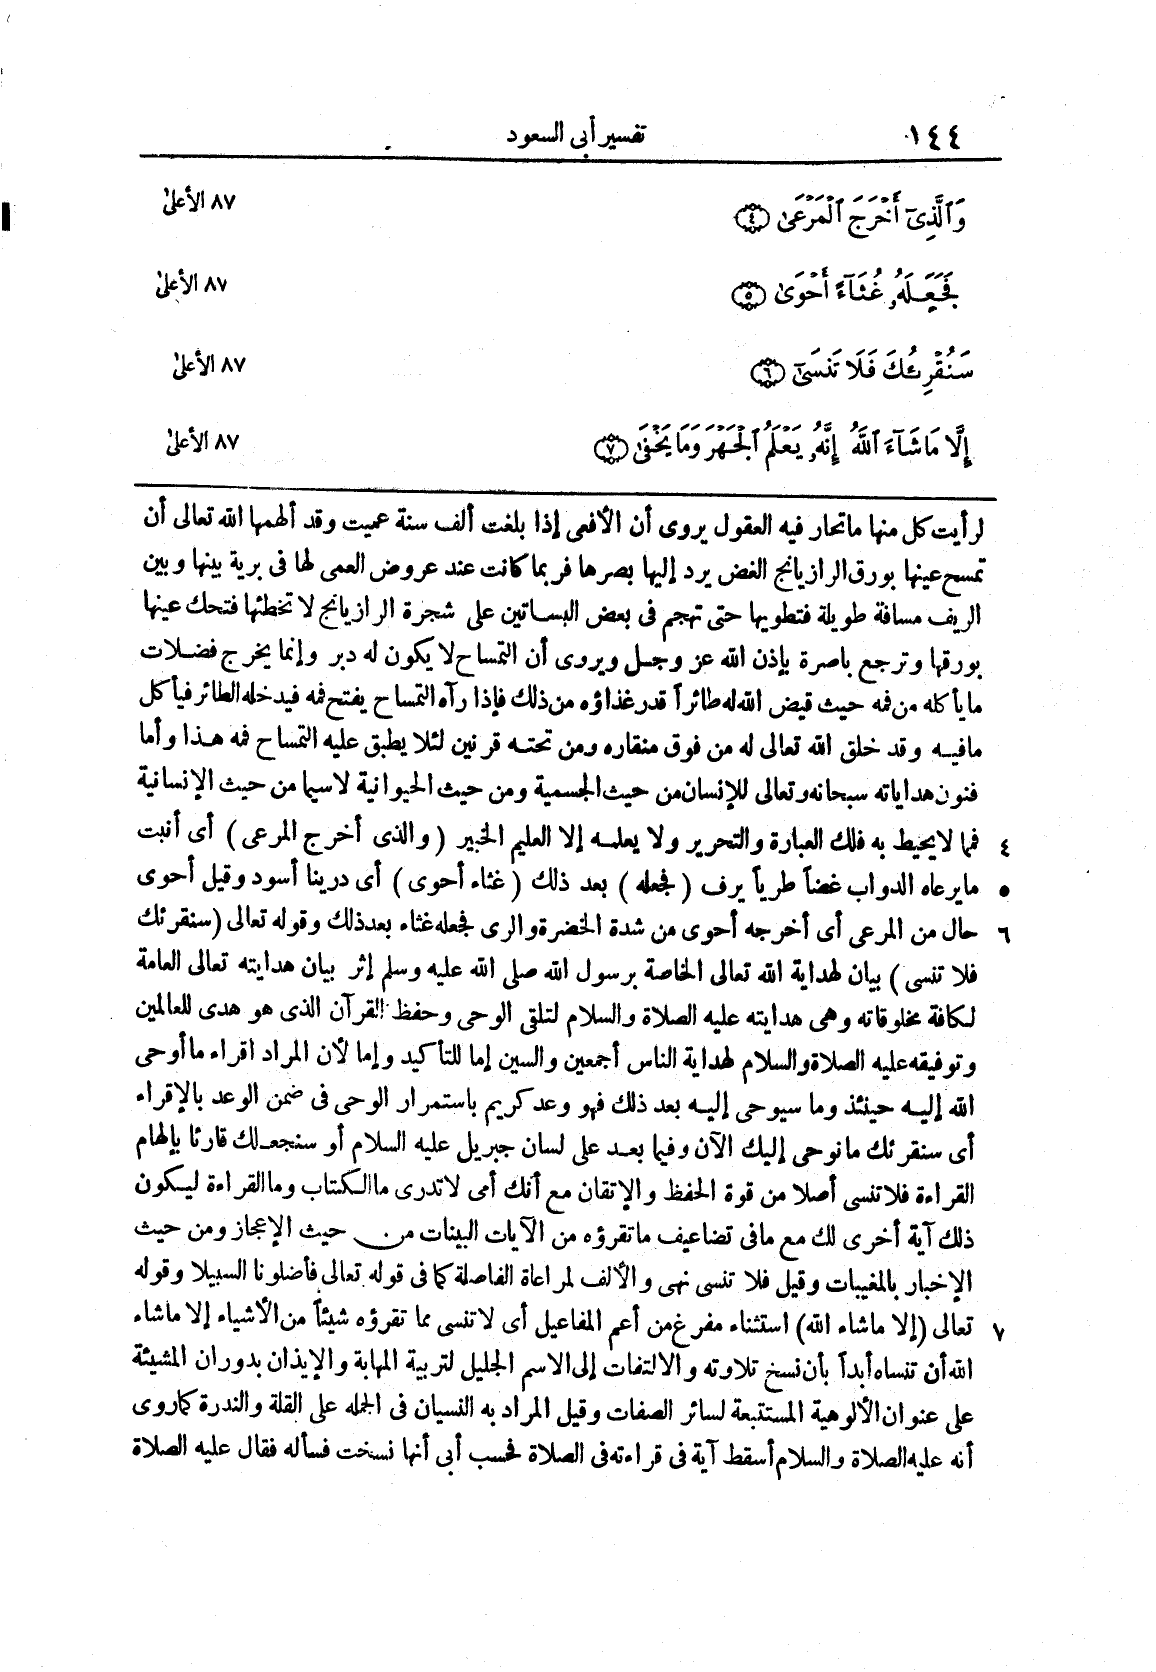 ١٤٤ تفسير أبى السعود
وَٱلَّذِىٓ أَخْرَجَ ٱلْمَرْعَىٰ ﴿٤﴾ ٨٧ الأعلىٰ
فَجَعَلَهُۥ غُثَآءً أَحْوَىٰ ﴿٥﴾ ٨٧ الأعلىٰ
سَنُقْرِئُكَ فَلَا تَنسَىٰٓ ﴿٦﴾ ٨٧ الأعلىٰ
إِلَّا مَا شَآءَ ٱللَّهُ إِنَّهُۥ يَعْلَمُ ٱلْجَهْرَ وَمَا يَخْفَىٰ ﴿٧﴾ ٨٧ الأعلىٰ
لرأيت كل منها ماتحار فيه العقول يروى أن الأفعى إذا بلغت ألف سنة عميت وقد ألهمها الله تعالى أن
تمسح عينها بورق الرازيانج الغض يرد إليها بصرها فربما كانت عند عروض العمى لها فى برية بينها وبين
الريف مسافة طويلة فتطويها حتى تهجم فى بعض البساتين على شجرة الرازيانج لا تخطئها فتحك عينها
بورقها وترجع باصرة بإذن الله عز وجل ويروى أن التمساح لا يكون له دبر وإنما يخرج فضلات
ما يأكله من فمه حيث قيض الله له طائراً قدر غذاؤه من ذلك فإذا رآه التمساح يفتح فمه فيدخله الطائر فيأكل
مافيه وقد خلق الله تعالى له من فوق منقاره ومن تحته قرنين لئلا يطبق عليه التمساح فمه هذا وأما
فنون هداياته سبحانه وتعالى للإنسان من حيث الجسمية ومن حيث الحيوانية لاسيما من حيث الإنسانية
٤ فمما لا يحيط به فلك العبارة والتحرير ولا يعلمه إلا العليم الخبير ( والذى أخرج المرعى ) أى أنبت
٥ مايرعاه الدواب غضاً طرياً يرف ( فجعله ) بعد ذلك ( غثاء أحوى ) أى درينا أسود وقيل أحوى
٦ حال من المرعى أى أخرجه أحوى من شدة الخضرة والرى فجعله غثاء بعد ذلك وقوله تعالى (سنقرئك
فلا تنسى ) بيان لهداية الله تعالى الخاصة برسول الله صلى الله عليه وسلم إثر بيان هدايته تعالى العامة
لكافة مخلوقاته وهى هدايته عليه الصلاة والسلام لتلقى الوحى وحفظ القرآن الذى هو هدى للعالمين
وتوفيقه عليه الصلاة والسلام لهداية الناس أجمعين والسين إما للتأكيد وإما لأن المراد اقراء ما أوحى
الله إليه حينئذ وما سيوحى إليه بعد ذلك فهو وعد كريم باستمرار الوحى فى ضمن الوعد بالإقراء
أى سنقرئك ما نوحى إليك الآن وفيما بعد على لسان جبريل عليه السلام أو سنجعلك قارئا بإلهام
القراءة فلا تنسى أصلا من قوة الحفظ والإتقان مع أنك أمى لا تدرى ما الكتاب وما القراءة ليكون
ذلك آية أخرى لك مع مافى تضاعيف ماتقرؤه من الآيات البينات من حيث الإعجاز ومن حيث
الإخبار بالمغيبات وقيل فلا تنسى نهى والألف لمراعاة الفاصلة كما فى قوله تعالى فأضلونا السبيلا وقوله
٧ تعالى (إلا ماشاء الله) استثناء مفرغ من أعم المفاعيل أى لا تنسى مما تقرؤه شيئاً من الأشياء إلا ماشاء
الله أن تنساه أبداً بأن نسخ تلاوته والالتفات إلى الاسم الجليل لتربية المهابة والإيذان بدوران المشيئة
على عنوان الألوهية المستتبعة لسائر الصفات وقيل المراد به النسيان فى الجملة على القلة والندرة كما روى
أنه عليه الصلاة والسلام أسقط آية فى قراءته فى الصلاة فحسب أبى أنها نسخت فسأله فقال عليه الصلاة